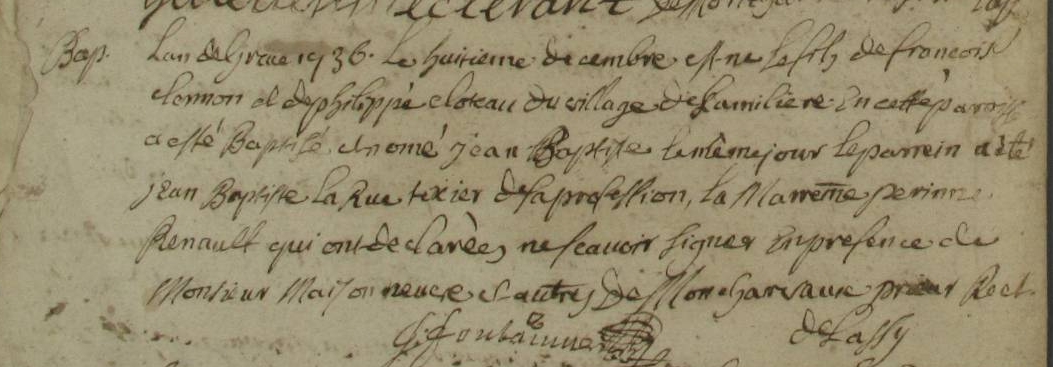 Bap. Lan de Grace 1736. Le huitieme decembre est ne le fils de francois
clemon et de philippe cloteau du village de Lamiliere En cette paroisse
a esté Baptisé et nomé jean Baptiste le même jour le parrein a été
jean Baptiste La Rue texier de sa profession, la Marrenne perinne
Renault qui ont declarées ne scavoir signer En presence de
Monsieur Maisonneuve et autres De Moncharvaux prieur Rect
de Lassy